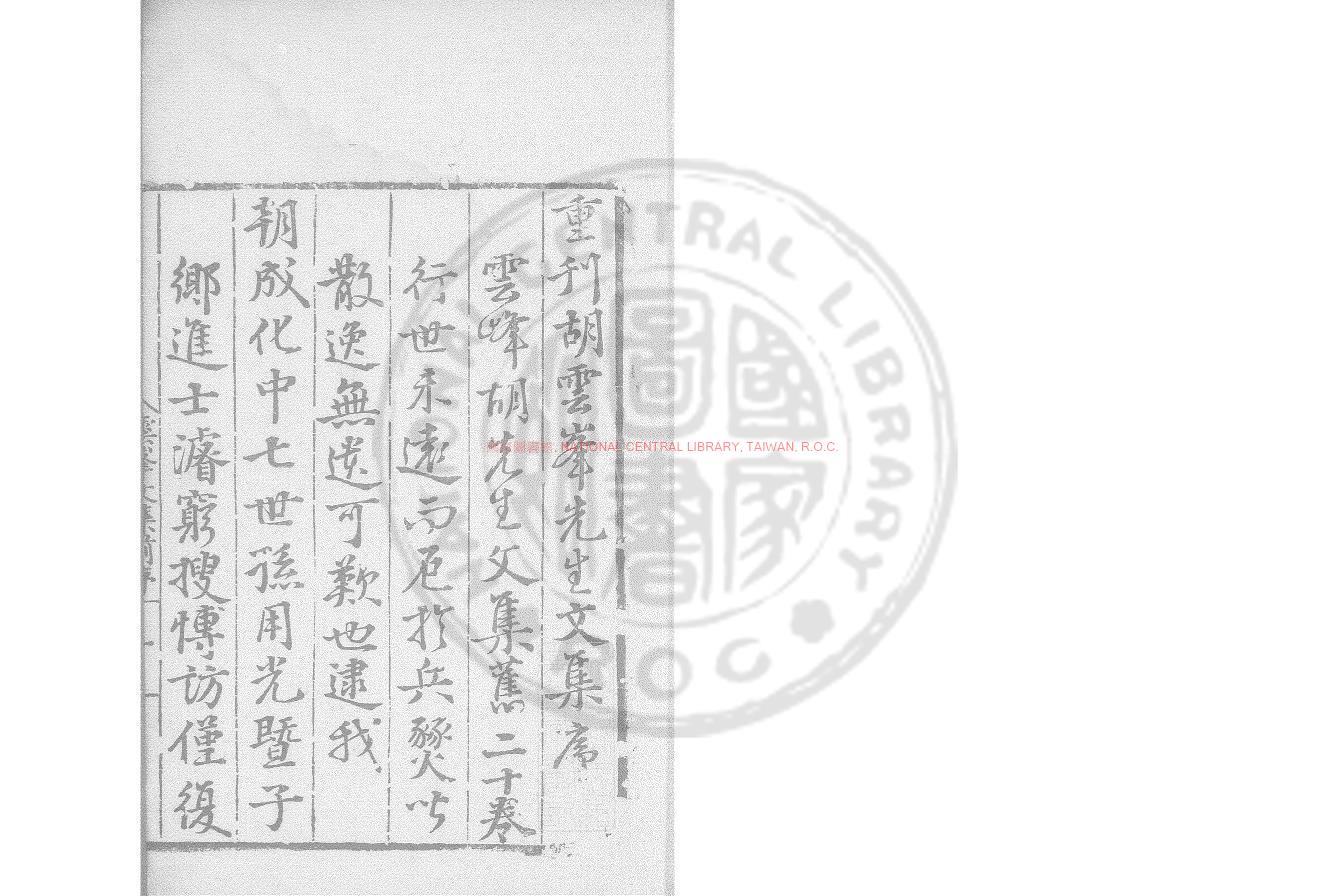 重刋胡雲峯先生文集序
雲峰胡先生文集舊二十卷
行世未遠而厄於兵燹皆
散逸無遺可歎也逮我
朝成化中七世孫用光暨子
鄉進士濬窮搜博訪僅復
雲峯文集前序
國家圖書館, NATIONAL CENTRAL LIBRARY, TAIWAN, R.O.C.
國家圖書館
CENTRAL LIBRARY
ROC